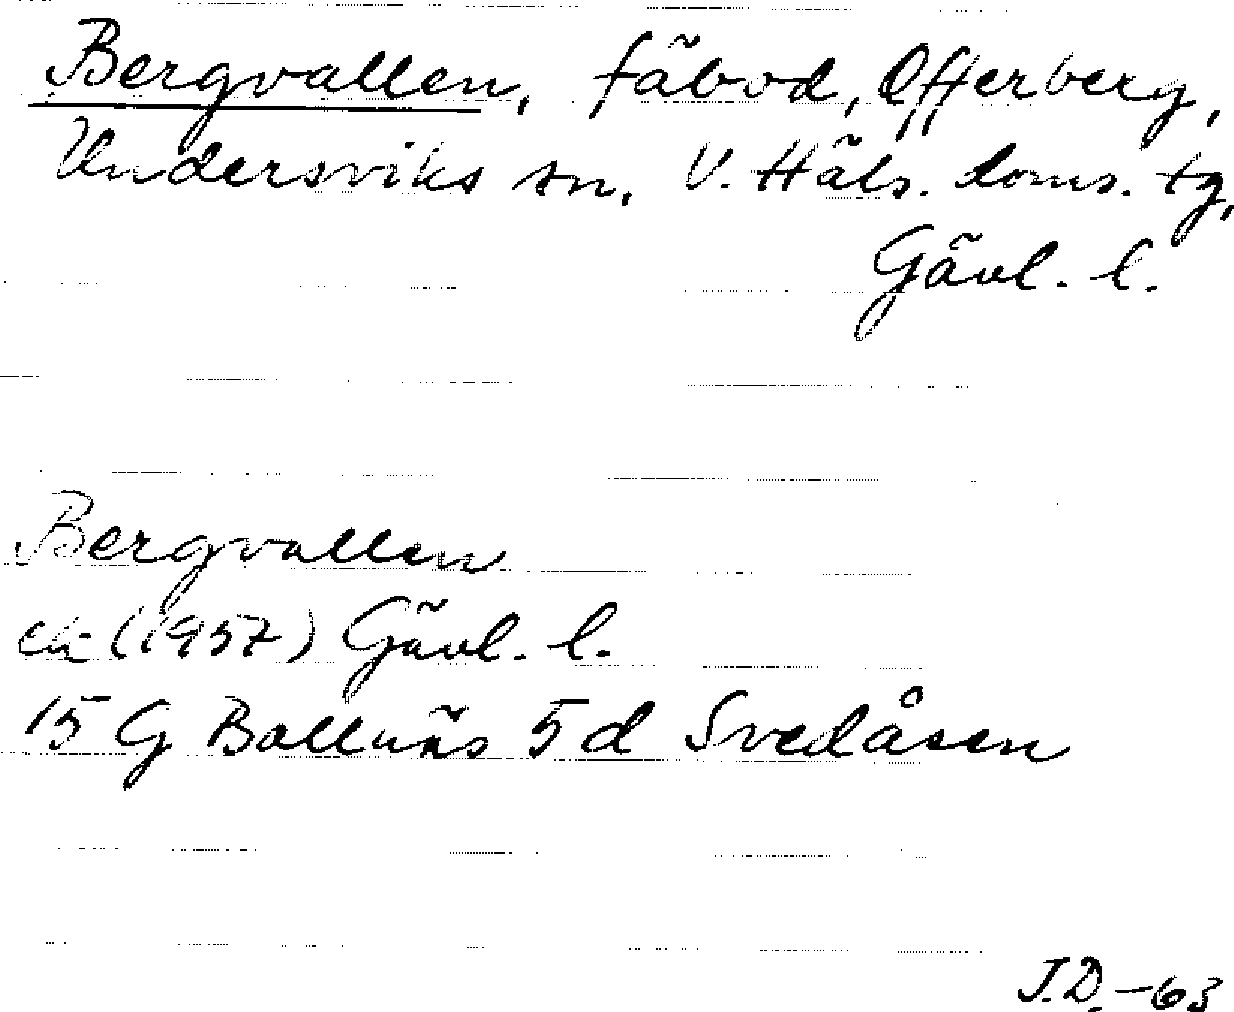 Bergvallen, fäbod, Offerberg,
Undersviks sn, V. Häls. doms. tg,
Gävl. l.
Bergvallen
ek (1957) Gävl. l.
15 G Bollnäs 5 d Svedåsen
J.D. -63